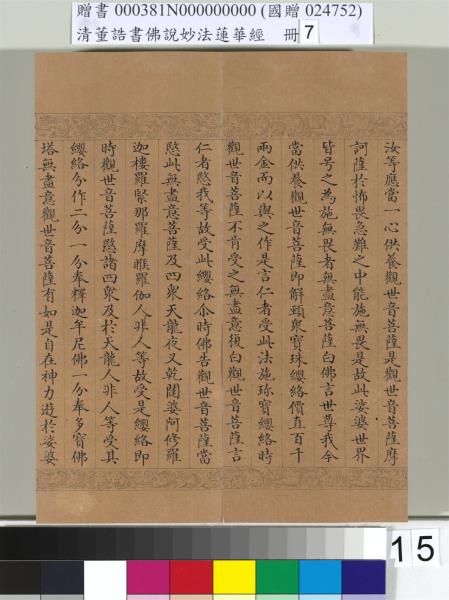 贈書 000381N000000000 (國贈 024752)
清董誥書佛說妙法蓮華經 冊 7
汝等應當一心供養觀世音菩薩是觀世音菩薩摩
訶薩於怖畏急難之中能施無畏是故此娑婆世界
皆号之為施無畏者無盡意菩薩白佛言世尊我今
當供養觀世音菩薩即解頸眾寶珠纓絡價直百千
兩金而以與之作是言仁者受此法施珍寶纓絡時
觀世音菩薩不肯受之無盡意復白觀世音菩薩言
仁者愍我等故受此纓絡尒時佛告觀世音菩薩當
愍此無盡意菩薩及四眾天龍夜叉乾闥婆阿修羅
迦樓羅緊那羅摩睺羅伽人非人等故受是纓絡即
時觀世音菩薩愍諸四眾及於天龍人非人等受其
纓絡分作二分一分奉釋迦牟尼佛一分奉多寶佛
塔無盡意觀世音菩薩有如是自在神力遊於娑婆
15